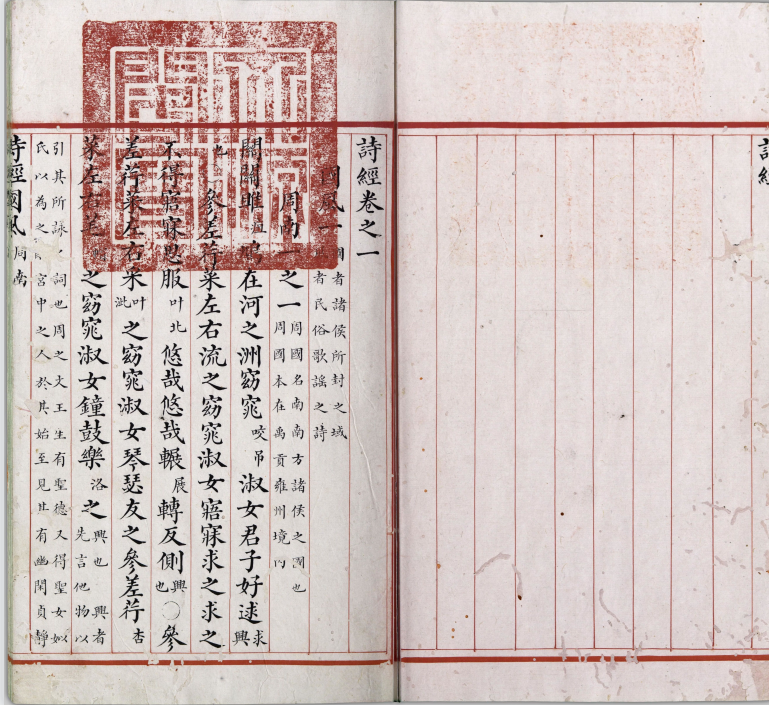 詩經
詩經卷之一
國風一
國者諸侯所封之域
者民俗歌謠之詩
周南一之一
周國名南南方諸侯之國也
周國本在禹貢雍州境內
關關雎疽鳩在河之洲窈窕咬吊淑女君子好逑求興
也參差荇菜左右流之窈窕淑女寤寐求之求之
不得寤寐思服叶北悠哉悠哉輾展轉反側興也○參
差荇菜左右采叶泚之窈窕淑女琴瑟友之參差荇杏
菜左右芼之窈窕淑女鐘鼓樂洛之興也興者先言他物以
引其所詠之詞也周之文王生有聖德又得聖女姒
氏以為之宮中之人於其始至見其有幽閑貞靜
詩經國風周南